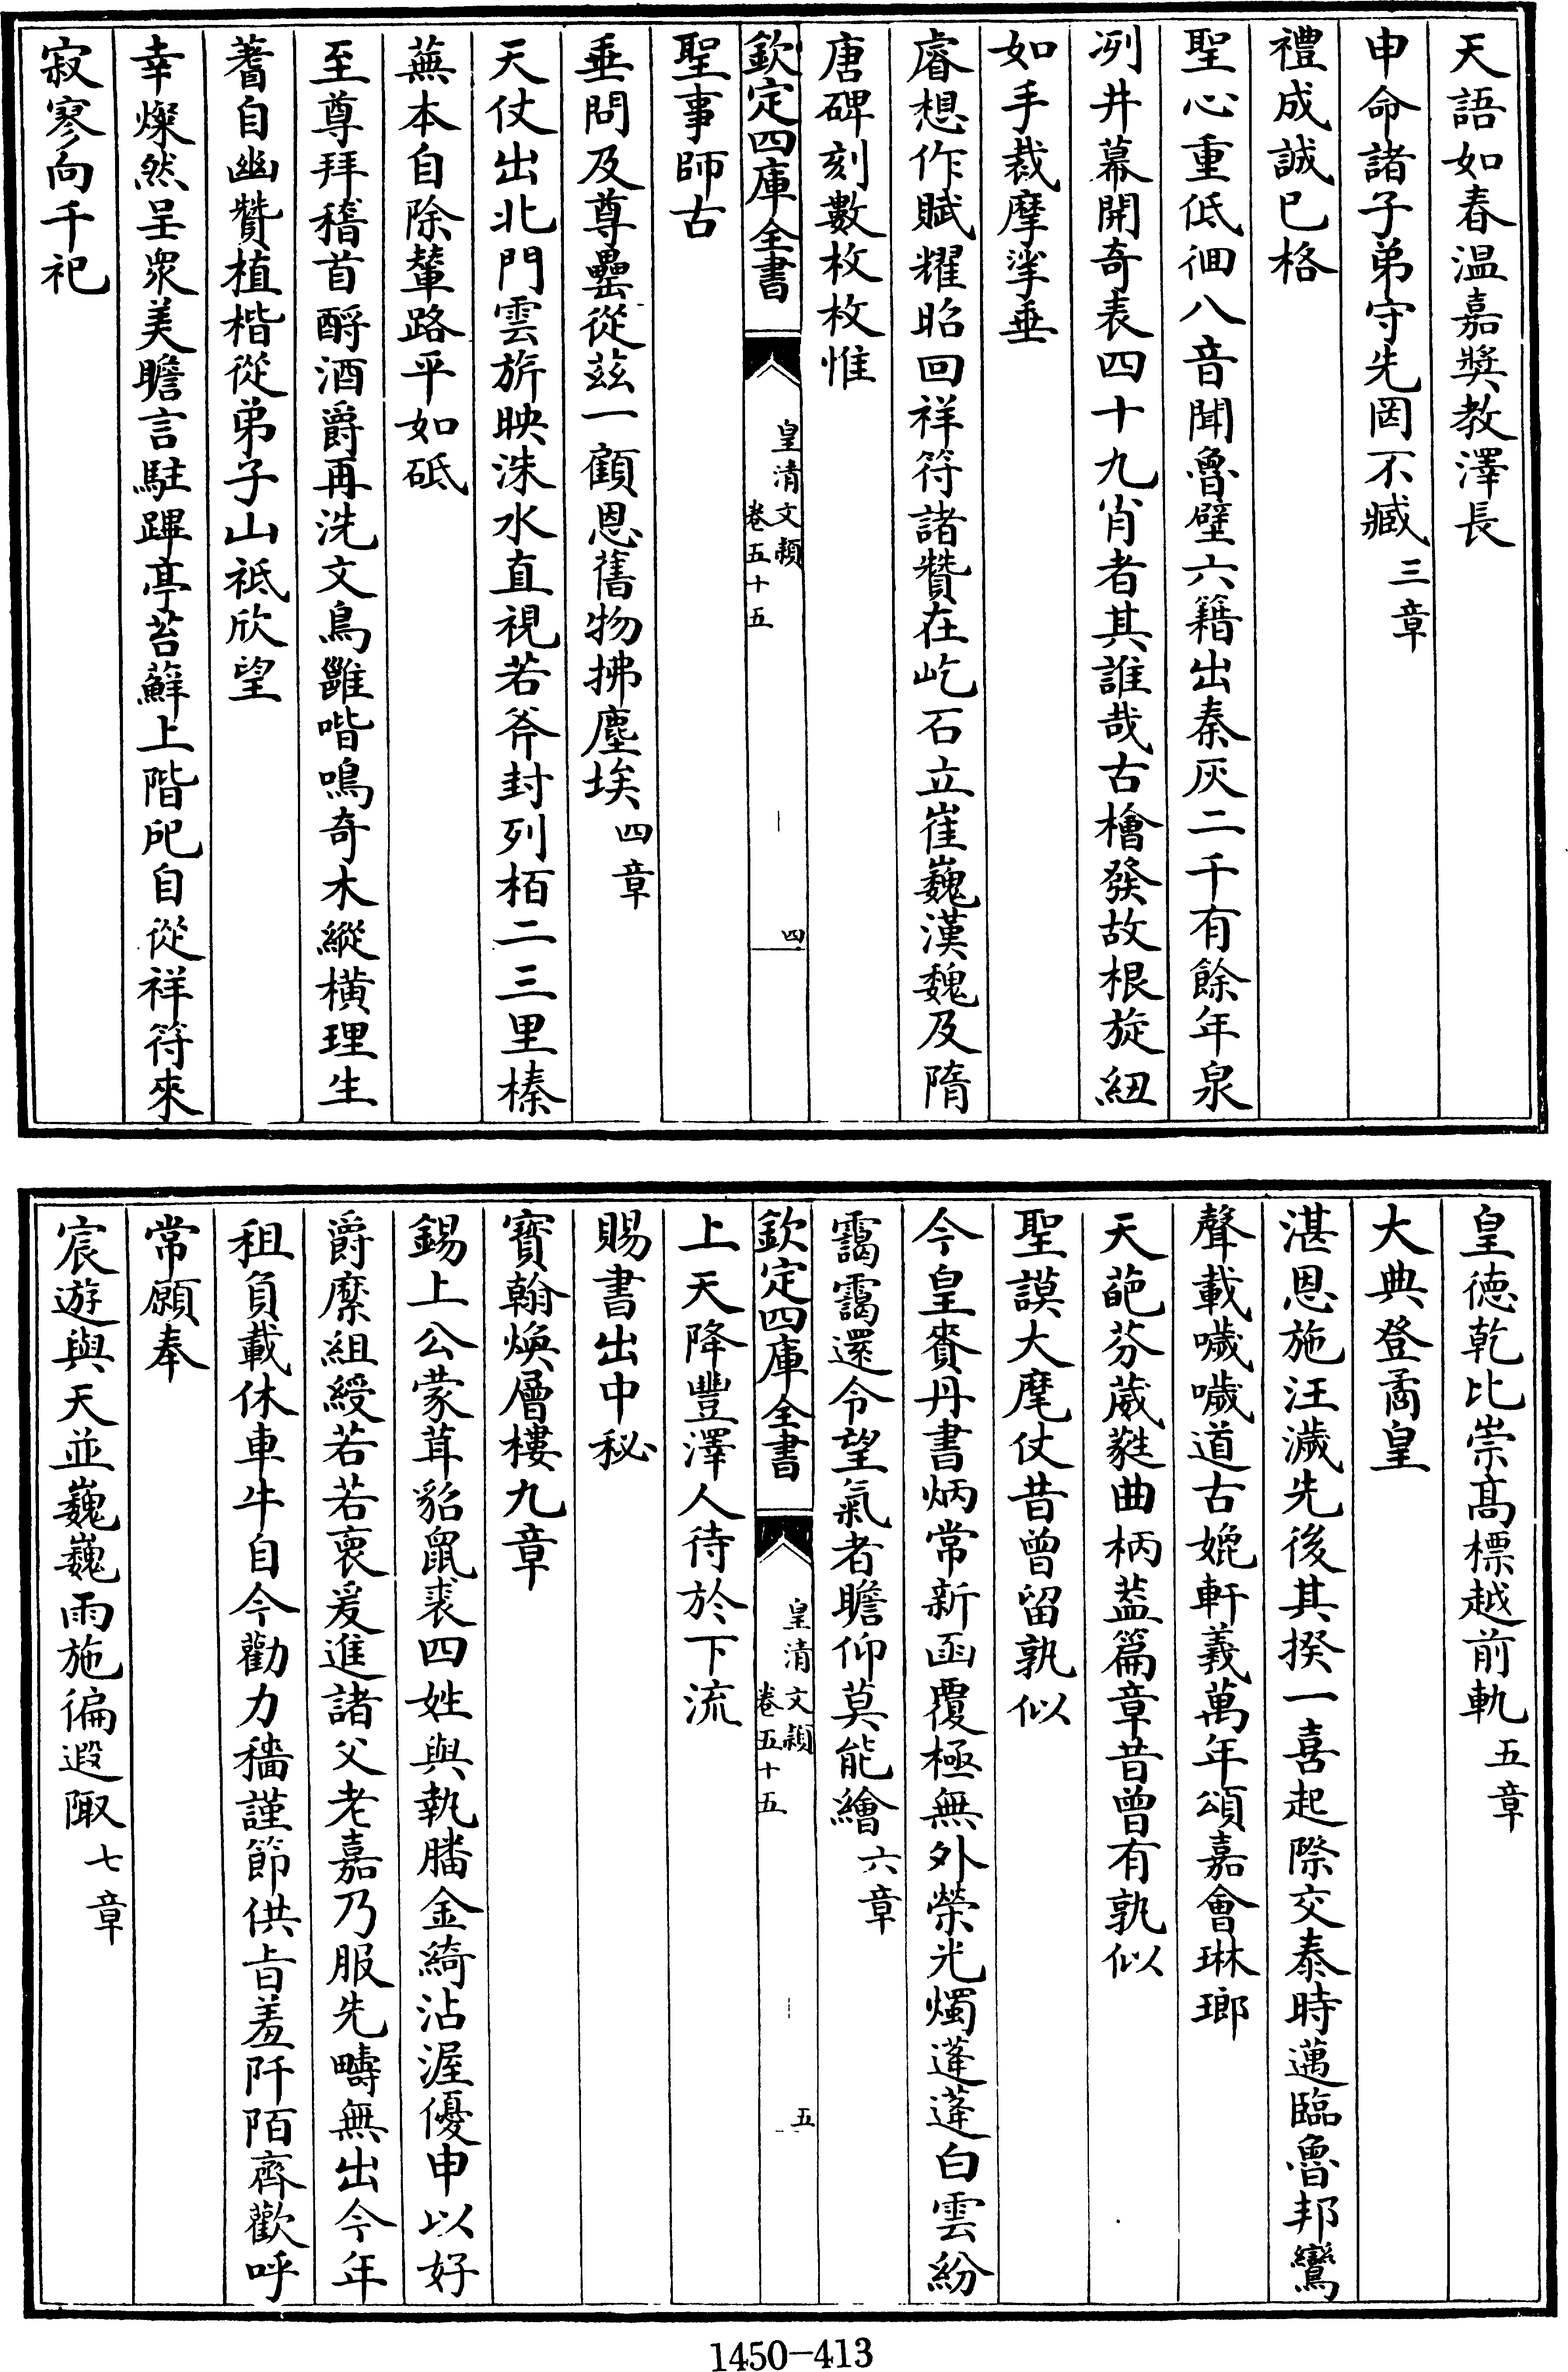 天語如春温嘉奬教澤長
申命諸子弟守先罔不臧三章
禮成誠已格
聖心重低徊八音聞魯壁六籍出秦灰二千有餘年泉
冽井幕開奇表四十九肖者其誰哉古檜發故根旋紐
如手裁摩挲垂
睿想作賦耀昭回祥符諸贊在屹石立崔巍漢魏及隋
唐碑刻數枚枚惟
欽定四庫全書
皇清文穎
卷五十五
四
聖事師古
垂問及尊罍從兹一顧恩舊物拂塵埃四章
天仗出北門雲旂映洙水直視若斧封列栢二三里榛
蕪本自除輦路平如砥
至尊拜稽首酹酒爵再洗文鳥雝喈鳴奇木縱横理生
蓍自幽贊植楷從弟子山祗欣望
幸燦然呈衆美瞻言駐蹕亭苔蘚上階戺自從祥符來
寂寥向千祀
皇德乾比崇髙標越前軌五章
大典登矞皇
湛恩施汪濊先後其揆一喜起際交泰時邁臨魯邦鸞
聲載噦噦道古媲軒羲萬年頌嘉會琳瑯
天葩芬葳蕤曲柄葢篇章昔曾有孰似
聖謨大麾仗昔曾留孰似
今皇賚丹書炳常新函覆極無外榮光燭蓬蓬白雲紛
靄靄還令望氣者瞻仰莫能繪六章
欽定四庫全書
皇清文穎
卷五十五
五
上天降豐澤人待於下流
賜書出中秘
寳翰焕層樓九章
錫上公蒙茸貂鼠裘四姓與執膰金綺沾渥優申以好
爵縻組綬若若裒爰進諸父老嘉乃服先疇無出今年
租負載休車牛自今勸力穡謹節供旨羞阡陌齊歡呼
常願奉
宸遊與天並巍巍雨施徧遐陬七章
1450-413